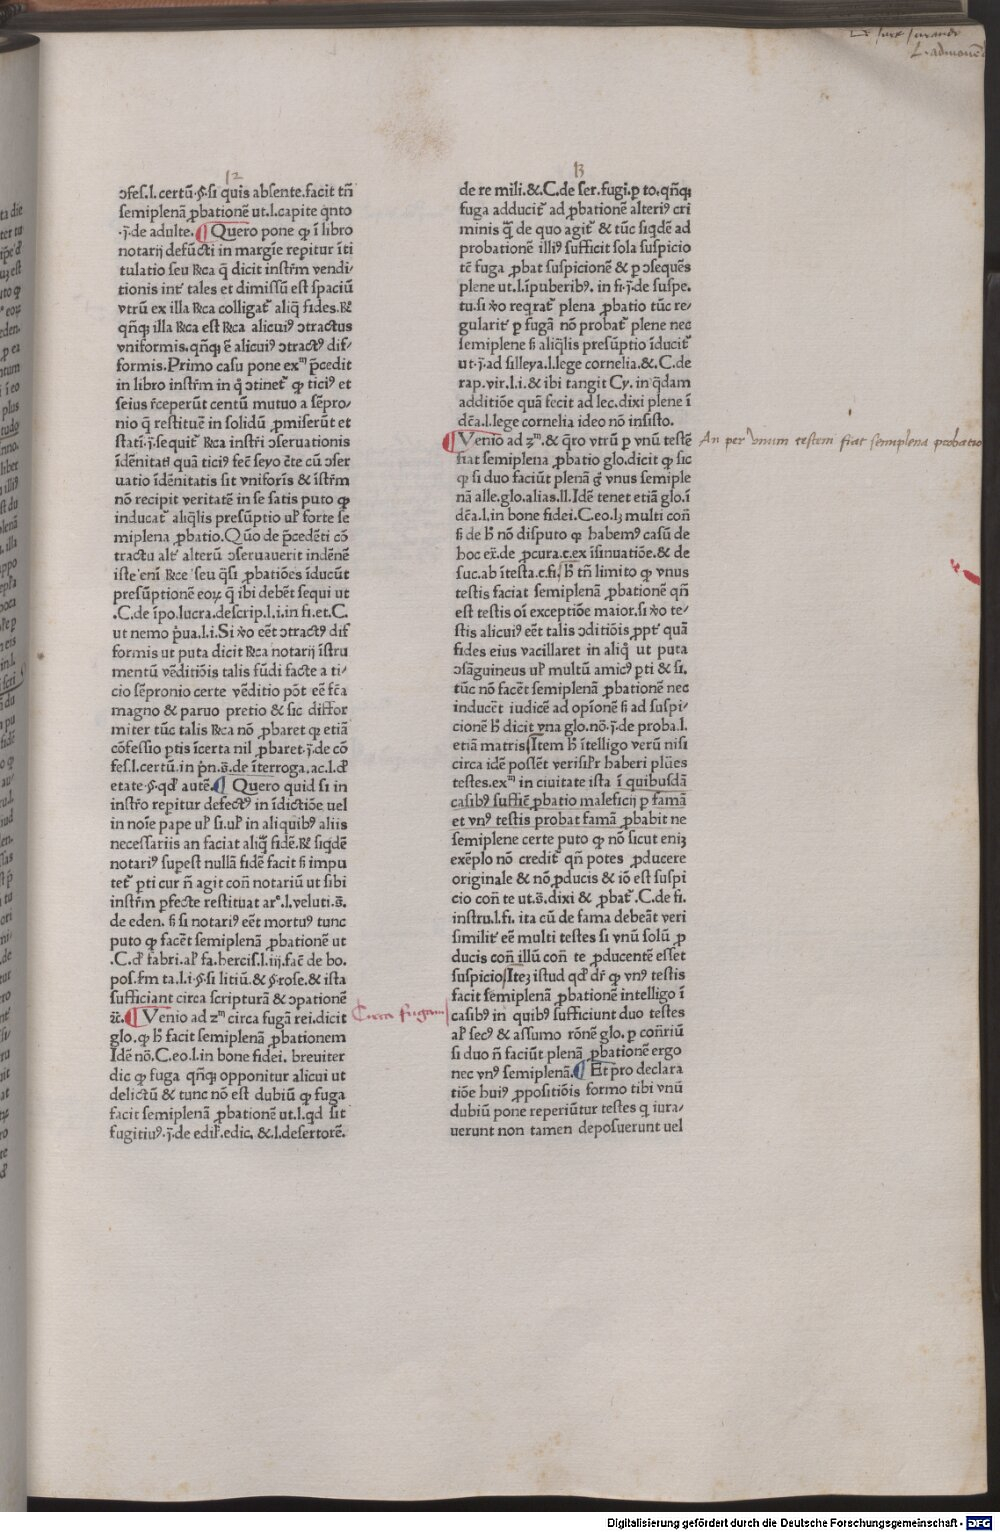 De jure jurandi
L. admonendi
12
ɔfes.l. certū.§.si quis absente. facit tn̄
semiplenā ꝓbationē ut.l.capite qͥnto
.j̄.de adulte. ¶ Quero pone ꝙ ī libro
notarij defūcti in margīe repitur īti
tulatio seu Rᷓca q̄ dicit instr̄m vendi/
tionis intͬ tales et dimissū est spaciū
vtrū ex illa Rᷓca colligatͬ aliq̄ fides. R̄
qn̄qꝫ illa Rᷓca est Rᷓca alicuiꝰ ɔtractus
vniformis. qn̄qꝫ ē alicuiꝰ ɔtractꝰ dif/
formis. Primo casu pone exᵐ p̄cedit
in libro instr̄m in q̊ ɔtinetͬ ꝙ ticiꝰ et
seius r̄ceperūt centū mutuo a sēpro/
nio q̄ restituē in solidū ꝓmiserūt et
statī.j̄.sequitͬ Rᷓca instr̄i ɔseruationis
īdēnitatꝭ quā ticiꝰ fec̄ seyo c̄te cū ɔser
uatio īdēnitatis sit vniforīs & īstr̄m
nō recipit veritatē in se satis puto ꝙ
inducatͬ aliq̄lis presūptio ul̓ forte se
miplena ꝓbatio. Quō de p̄cedēti cō
tractu altͬ alterū ɔseruauerit indēnē
iste enī Rᷓce seu q̄si ꝓbatiōes īducūt
presūptionē eoꝝ q̄ ibi debēt sequi ut
.C.de īpo.lucra.descrip.l.i.in fi.et.C.
ut nemo p̄ua.l.i. Si v̊o eēt ɔtractꝰ dif
formis ut puta dicit Rᷓca notarij īstru
mentū vēditiōis talis fūdi facte a ti/
cio sēpronio certe vēditio pōt eē fc̄a
magno & paruo pretio & sic diffor
miter tūc talis Rᷓca nō ꝓbaret ꝙ etiā
cōfessio ꝑtis īcerta nil ꝓbaret.j̄.de cō
fes.l.certū.in p̄n.s̄.de īterroga.ac.l.d̓
etate.§.qd̓ autē. ¶ Quero quid si in
instr̄o repitur defectꝰ in īdictiōe uel
in noīe pape ul̓ si.ul̓ in aliquibꝰ aliis
necessariis an faciat aliq̄ fidē. R̄ siqdē
notariꝰ supest nullā fidē facit s̄ impu
tetͬ ꝑti cur n̄ agit con̄ notariū ut sibi
instr̄m ꝑfecte restituat arᵉ.l.veluti.s̄.
de eden. s̄ si notariꝰ eēt mortuꝰ tunc
puto ꝙ facēt semiplenā ꝓbationē ut
.C.d̓ fabri.al̓ fa.hercis.l.iij.fac̄ de bo.
pos.s̄m ta.l.i.§.si litiū.& §.rose.& ista
sufficiant circa scripturā & ɔpationē
⁊c̄. ¶ Venio ad zᵐ circa fugā rei. dicit
Circa fugam
glo. ꝙ h̄ facit semiplenā ꝓbationem
Idē nō.C.eo.l.in bone fidei. breuiter
dic ꝙ fuga qn̄qꝫ opponitur alicui ut
delictū & tunc nō est dubiū ꝙ fuga
facit semiplenā ꝓbationē ut.l.qd sit
fugitiuꝰ.j̄.de edil̓.edic. &.l.desertorē.
13
de re mili.&.C.de ser.fugi.p to.qn̄qꝫ
fuga adducitͬ ad ꝓbationē alteriꝰ cri
minis q̄ de quo agitͬ & tūc siqdē ad
probationē illiꝰ sufficit sola suspicio
tē fuga ꝓbat suspicionē & p ɔsequēs
plene ut.l.īpuberibꝰ. in fi.j̄.de suspe.
tu. si v̊o reqratͬ plena ꝓbatio tūc re/
gularitͬ p fugā nō probatͬ plene nec
semiplene s̄ aliq̄lis presūptio īducitͬ
ut.j̄.ad silleya.l.lege cornelia.&.C.de
rap.vir.l.i.& ibi tangit Cy.in q̄dam
additiōe quā fecit ad lec. dixi plene ī
dc̄a.l.lege cornelia ideo nō insisto.
¶ Venio ad zᵐ.& q̄ro vtrū p vnū testē
An per vnum testem fiat semiplena probatio
fiat semiplena ꝓbatio glo. dicit ꝙ sic
ꝙ si duo faciūt plenā g̊ vnus semiple
nā alle.glo.alias.ll. Idē tenet etiā glo.ī
dc̄a.l.in bone fidei.C.eo.lꝫ multi con̄
s̄ de h̄ nō disputo ꝙ habemꝰ casū de
hoc ex̄.de ꝓcura.c.ex īsinuatiōe.& de
suc.ab ītesta.c.fi. h̄ tn̄ limito ꝙ vnus
testis faciat semiplenā ꝓbationē qn̄
est testis oī exceptiōe maior. si v̊o te/
stis alicuiꝰ eēt talis ɔditiōis ꝓptͬ quā
fides eius vacillaret in aliq̊ ut puta
ɔsāguineus ul̓ multū amicꝰ ꝑti & si.
tūc nō facēt semiplenā ꝓbationē nec
inducēt iudicē ad opīonē s̄ ad suspi/
cionē h̄ dicit vna glo.nō.j̄.de proba.l.
etiā matris Item h̄ ītelligo verū nisi
circa idē possēt verisil̓r haberi plūes
testes. exᵐ in ciuitate ista ī quibusdā
casibꝰ suffic̄ ꝓbatio maleficij p famā
et vnꝰ testis probat famā ꝓbabit ne
semiplene certe puto ꝙ nō sicut enīꝫ
exēplo nō creditͬ qn̄ potes ꝓducere
originale & nō ꝓducis & iō est suspi
cio con̄ te ut.s̄.dixi & ꝓbatͬ.C.de fi.
instru.l.fi. ita cū de fama debeāt veri
similitͬ eē multi testes si vnū solū ꝓ
ducis con̄ illū con̄ te ꝓducentē esset
suspicio Iteꝫ istud qd̓ dr̄ ꝙ vnꝰ testis
facit semiplenā ꝓbationē intelligo ī
casibꝰ in quibꝰ sufficiunt duo testes
al̓ secꝰ & assumo rōnē glo. p con̄riū
si duo n̄ faciūt plenā ꝓbationē ergo
nec vnꝰ semiplenā. ¶ Et pro declara
tiōe huiꝰ ꝓpositiōis formo tibi vnū
dubiū pone reperiūtur testes q̄ iura/
uerunt non tamen deposuerunt uel
Digitalisierung gefördert durch die Deutsche Forschungsgemeinschaft - DFG